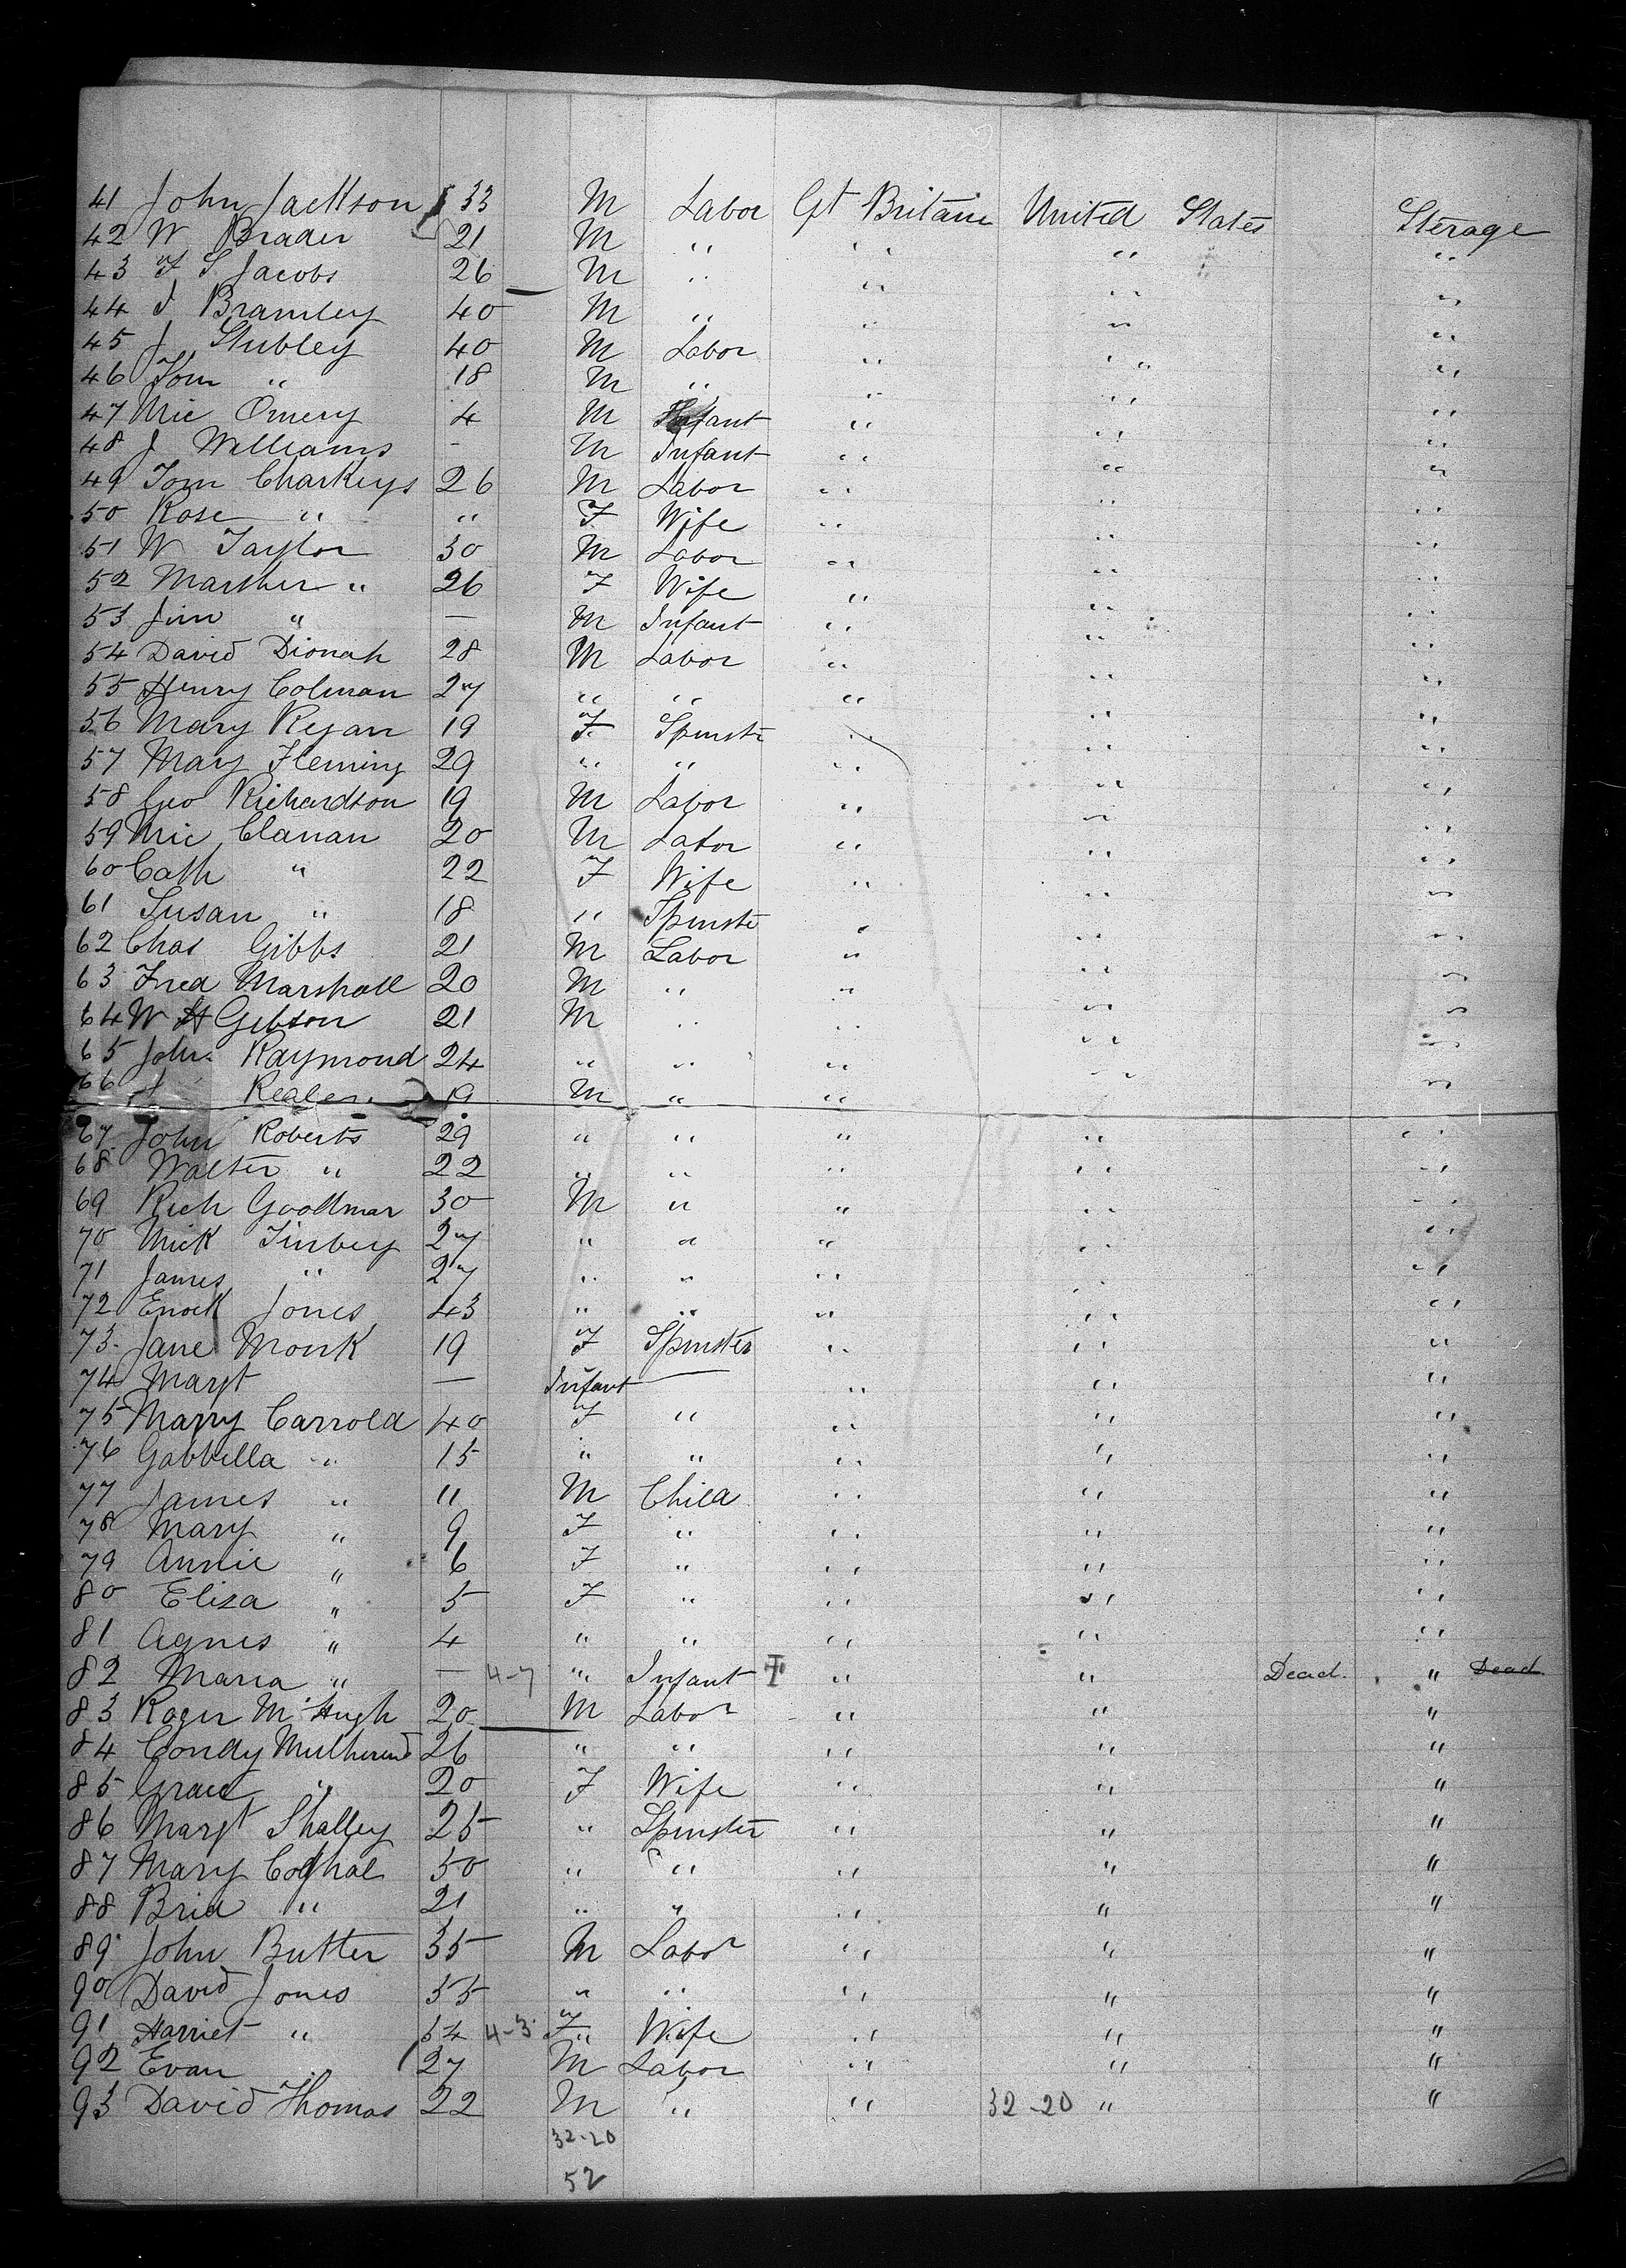 41 John Jackson 33 M Labor Gt Britain United States Sterage
42 W Brader 21 M " " " "
43 F S Jacobs 26 M " " " "
44 J Bramley 40 M " " " "
45 J Stubley 40 M Labor " " "
46 Tom " 18 M " " " "
47 Mic Omery 4 M Infant " " "
48 J Williams - M Infant " " "
49 Tom Charkeys 26 M Labor " " "
50 Rose " " F Wife " " "
51 W Taylor 30 M Labor " " "
52 Marther " 26 F Wife " " "
53 Jim " — M Infant " " "
54 David Dionah 28 M Labor " " "
55 Henry Colman 27 " " " " "
56 Mary Regan 19 F Spinstr " " "
57 Mary Fleming 29 " " " " "
58 Geo Richardson 19 M Labor " " "
59 Mic Clanan 20 M Labor " " "
60 Cath " 22 F Wife " " "
61 Susan " 18 " Spinste " " "
62 Chas Gibbs 21 M Labor " " "
63 Fred Marshall 20 M " " " "
64 W H Gibson 21 M " " " "
65 John Raymond 24 " " " " "
66 J 19 M " " " "
67 John Roberts 29 " " " " "
68 Walter " 22 " " " " "
69 Rich Goodmar 30 M " " " "
70 Mick Tinbey 27 " " " " "
71 James " 27 " " " " "
72 Enock Jones 43 " " " " "
73 Jane Monk 19 F Spinster " " "
74 Margt — Infant — " " "
75 Marry Carrold 40 F " " " "
76 Gabbella " 15 " " " " "
77 James " 11 M Child " " "
78 Mary " 9 F " " " "
79 Annie " 6 F " " " "
80 Eliza " 5 F " " " "
81 Agnes " 4 " " " " "
82 Maria " — 4-7 " Infant " " Dead " Dead
83 Roger McHugh 20 M Labor " " "
84 Condy 26 " " " " "
85 Grace " 20 F Wife " " "
86 Margt Shalley 25 " Spinster " " "
87 Mary Coghal 50 " " " " "
88 Brid " 21 " " " " "
89 John Butter 35 M Labor " " "
90 David Jones 55 " " " " "
91 Harriet " 54 4-3 F Wife " " "
92 Evan 27 M Labor " " "
93 David Thomas 22 M " " 32-20 " "
32-20
52